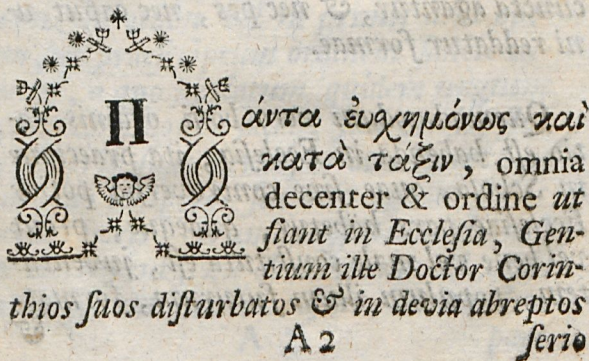 Πάντα ἐυχημόνως καὶ
κατὰ τάξιν, omnia
decenter & ordine ut
fiant in Ecclesia, Gen-
tium ille Doctor Corin-
thios suos disturbatos & in devia abreptos
A 2 serio